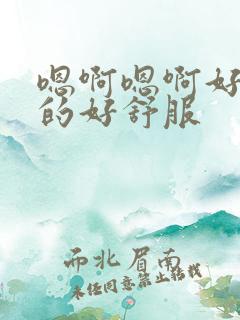 嗯啊嗯啊好
的好舒服
而北眉南
未经同意禁止转载